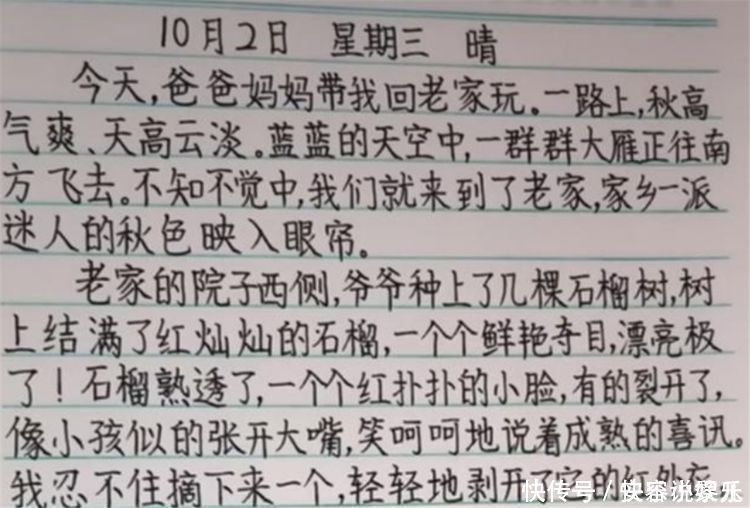 10月2日 星期三 晴
今天,爸爸妈妈带我回老家玩。一路上,秋高
气爽、天高云淡。蓝蓝的天空中,一群群大雁正往南
方飞去。不知不觉中,我们就来到了老家,家乡一派
迷人的秋色映入眼帘。
老家的院子西侧,爷爷种上了几棵石榴树,树
上结满了红灿灿的石榴,一个个鲜艳夺目,漂亮极
了!石榴熟透了,一个个红扑扑的小脸,有的裂开了,
像小孩似的张开大嘴,笑呵呵地说着成熟的喜讯。
我忍不住摘下来一个,轻轻地剥开了它的红外衣
快传号/